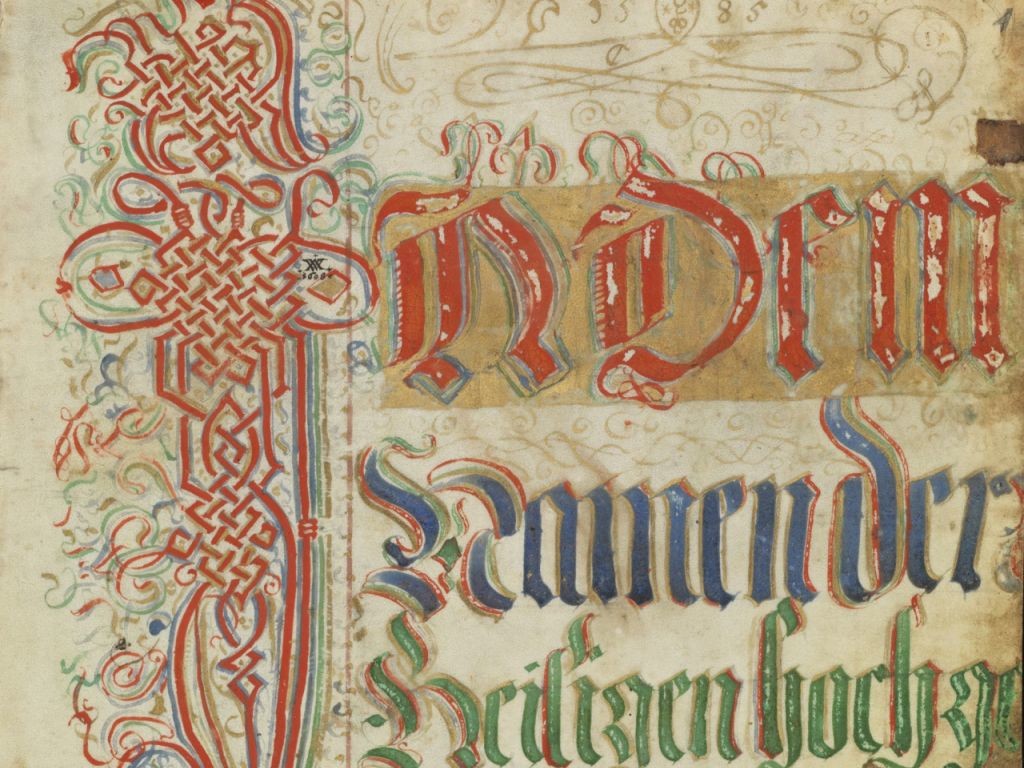 1585
IN Dem
Namen der
Heiligen hoch ge